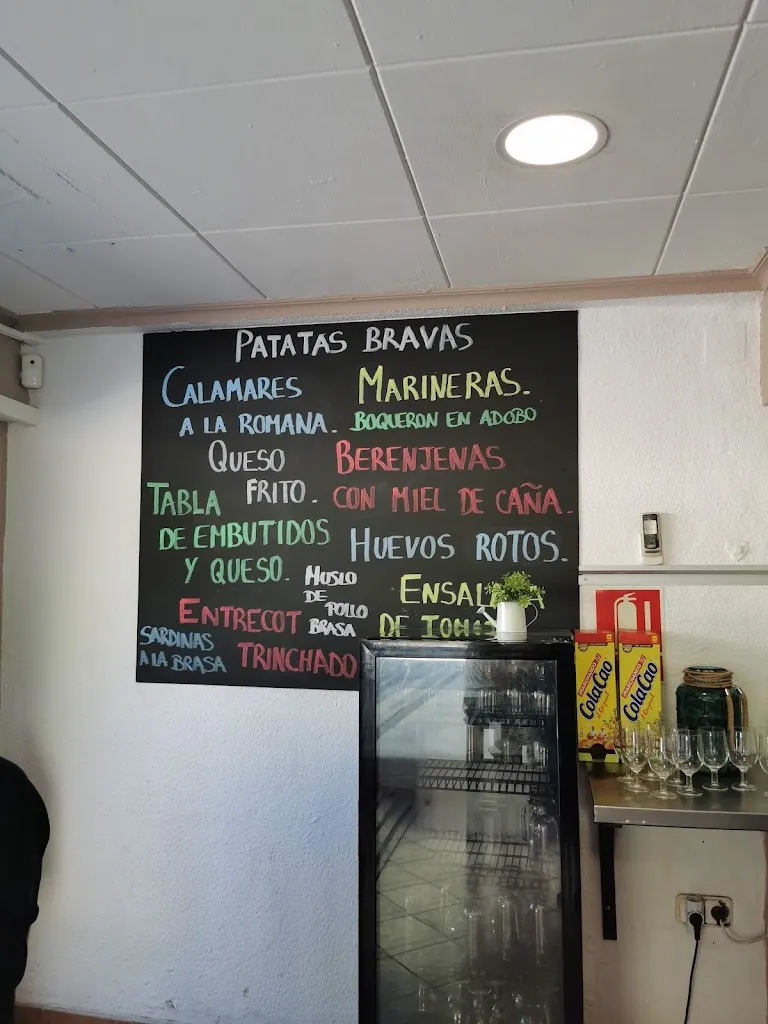 PATATAS BRAVAS
CALAMARES
A LA ROMANA.
MARINERAS.
BOQUERON EN ADOBO
QUESO
FRITO.
BERENJENAS
CON MIEL DE CAÑA.
TABLA
DE EMBUTIDOS
Y QUESO.
HUEVOS ROTOS.
MUSLO
DE
POLLO
BRASA
DE
ENTRECOT
TRINCHADO
SARDINAS
A LA BRASA
ColaCao
ColaCao